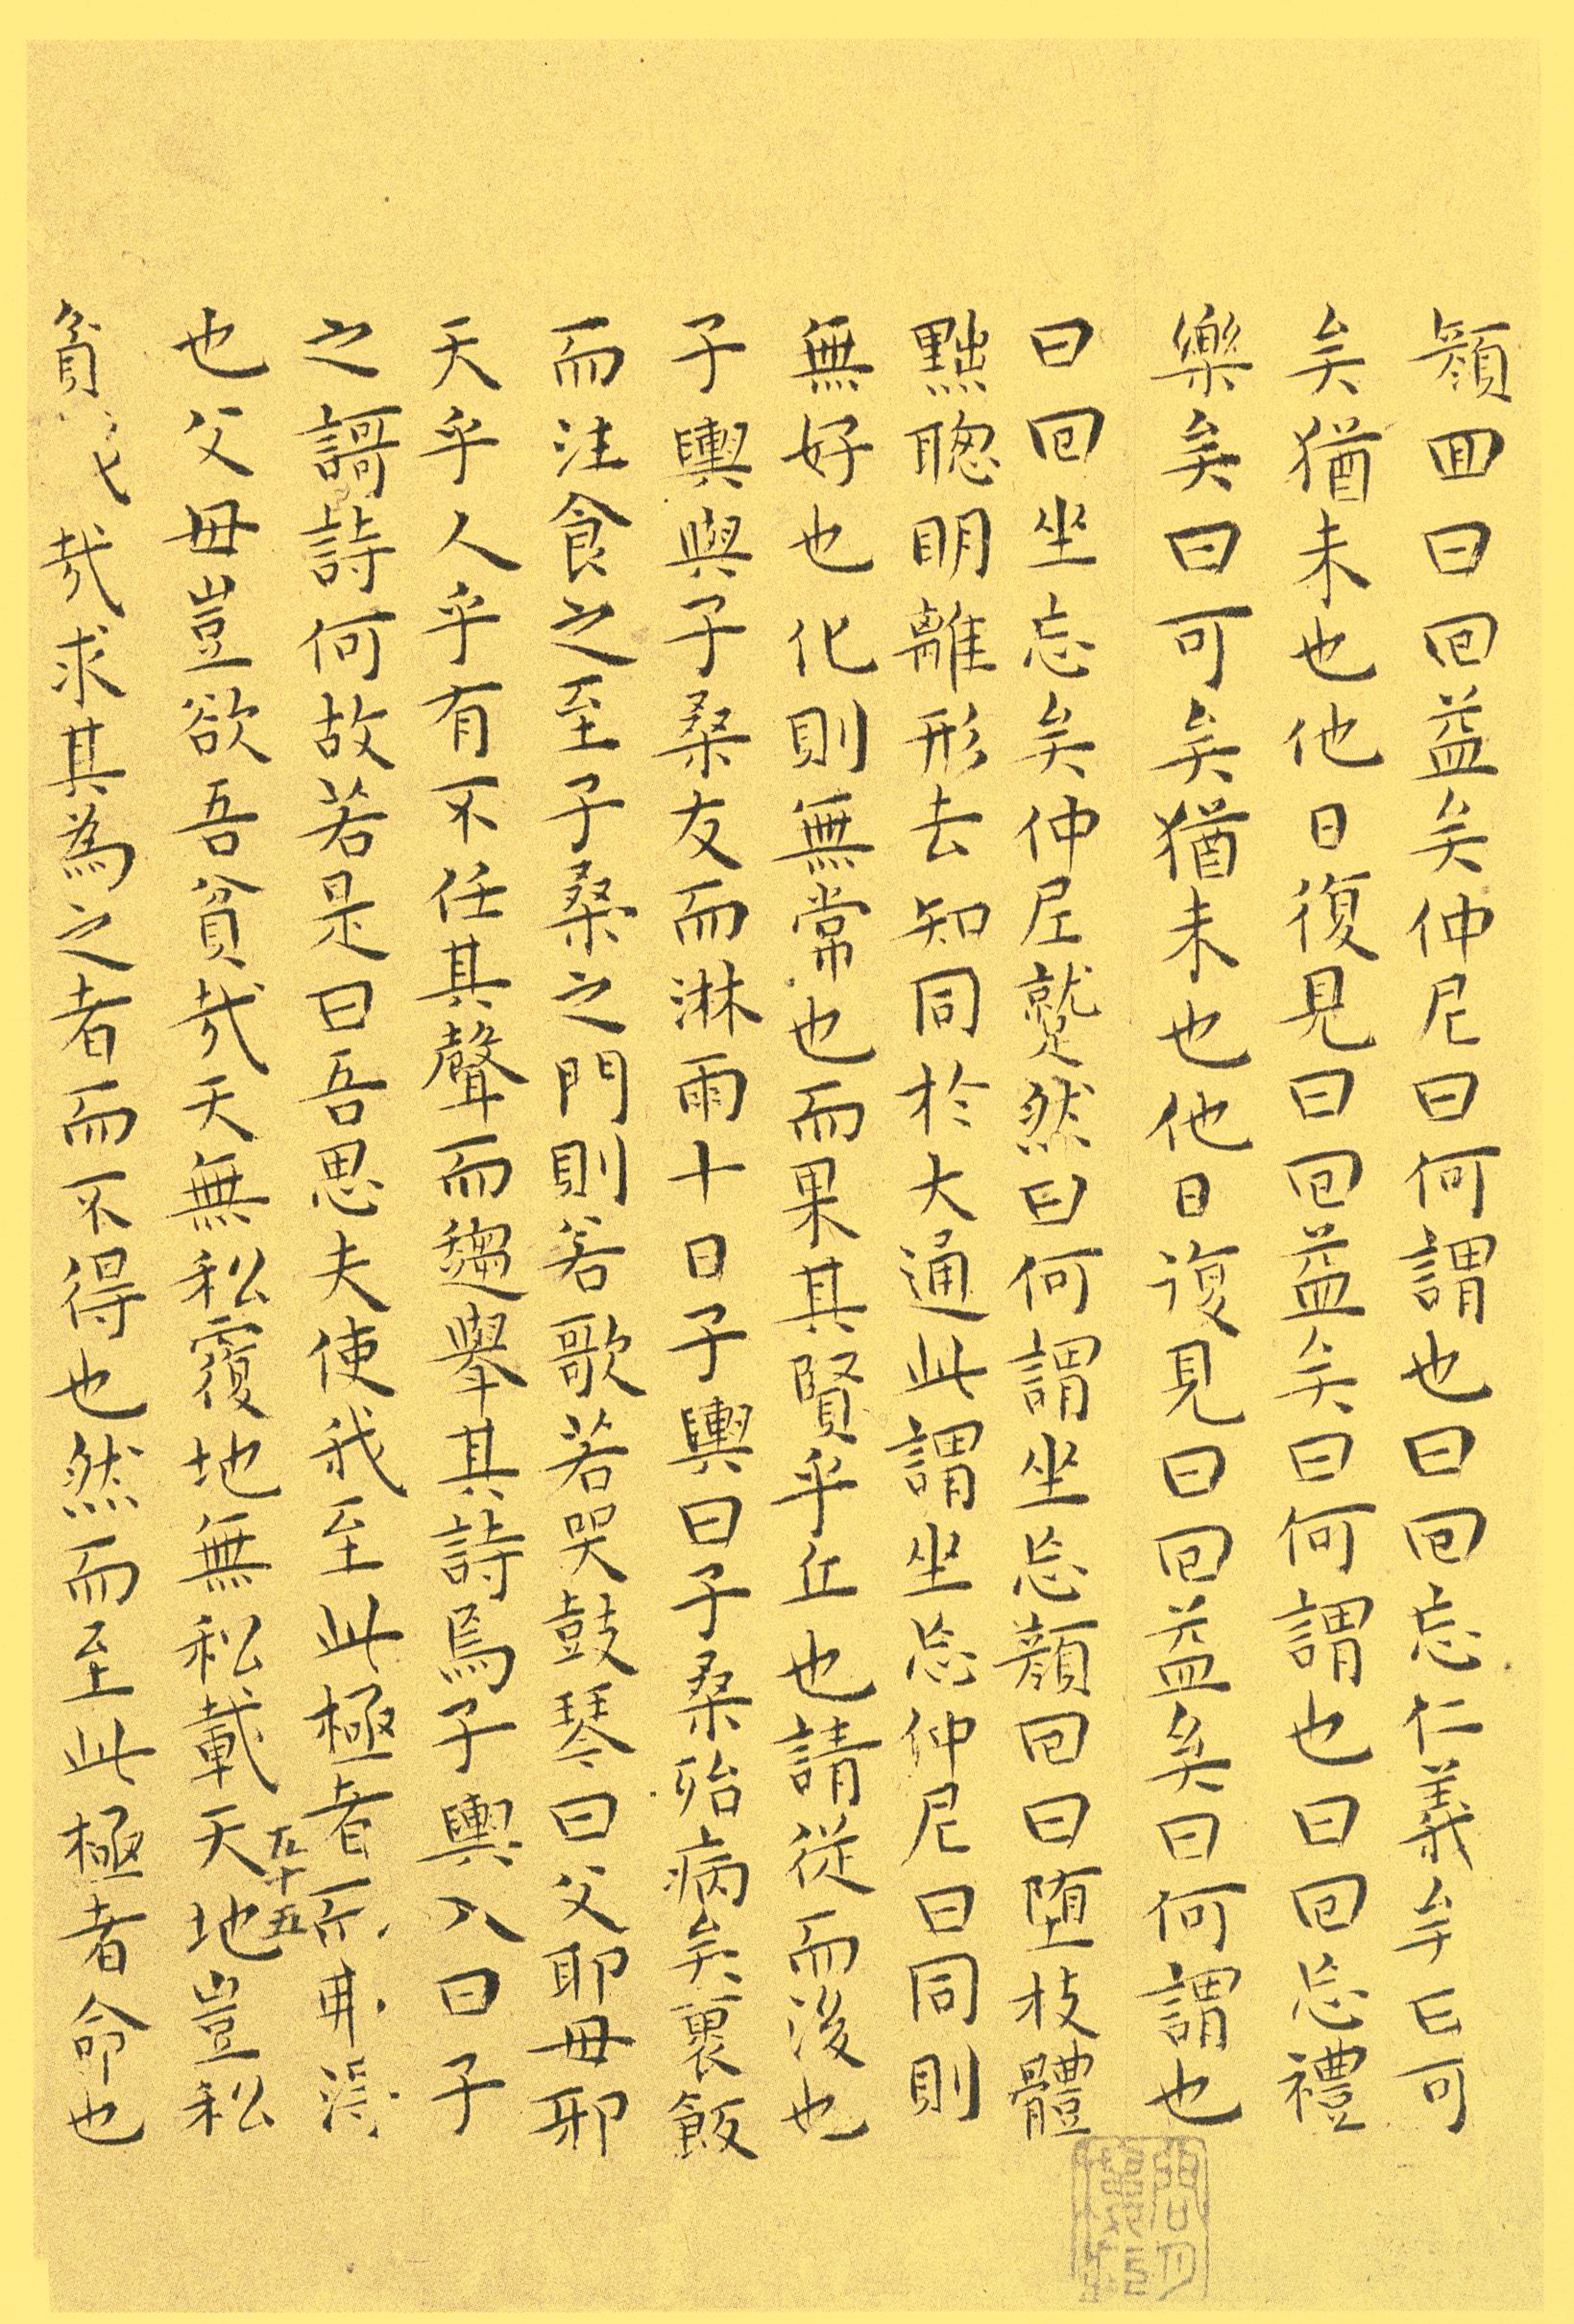 顏回曰回益矣仲尼曰何謂也曰回忘仁義矣曰可
矣猶未也他日復見曰回益矣曰何謂也曰回忘禮
樂矣曰可矣猶未也他日復見曰回益矣曰何謂也
曰回坐忘矣仲尼蹵然曰何謂坐忘顏回曰堕枝體
黜聰明離形去知同於大通此謂坐忘仲尼曰同則
無好也化則無常也而果其賢乎丘也請從而後也
子輿與子桑友而淋雨十日子輿曰子桑殆病矣裹飯
而注食之至子桑之門則若歌若哭鼓琴曰父耶母邪
天乎人乎有不任其聲而趨舉其詩焉子輿入曰子
之謌詩何故若是曰吾思夫使我至此極者而弗得
也父母豈欲吾貧哉天無私覆地無私載天地豈私
五十五
貧哉求其為之者而不得也然而至此極者命也